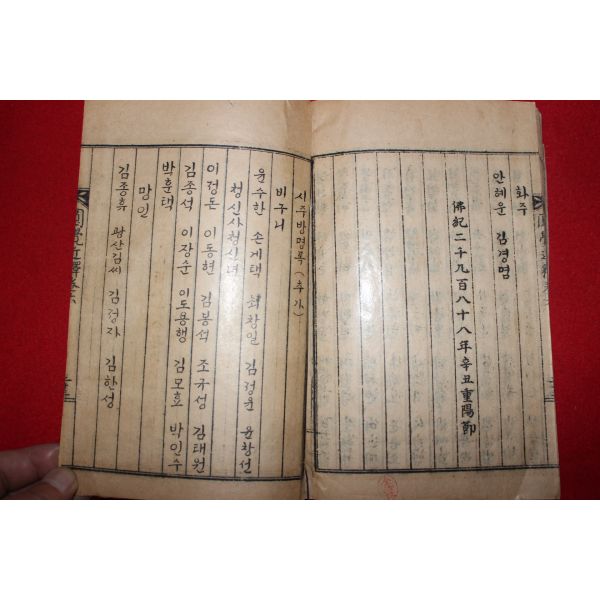 화주
안혜운 김경념
佛紀二千九百八十八年辛丑重陽節
시주방명록(추가)
비구니
윤수한 손계택 최창일 김경운 윤창선
청신사청신녀
이정돈 이동현 김봉석 조규성 김태원
김종석 이장순 이도용행 김모효 박인수
박훈택
망인
김종휴 광산김씨 김정자 김한성